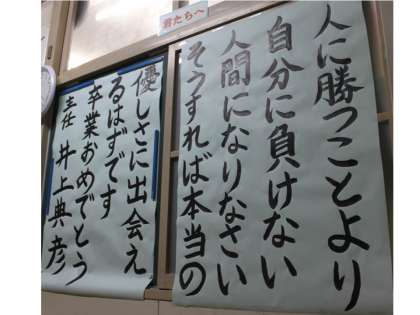 君たちへ
人に勝つことより
自分に負けない
人間になりなさい
そうすれば本当の
優しさに出会え
るはずです
卒業おめでとう
主任 井上典彦